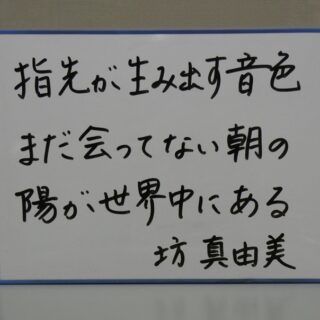 指先が生み出す音色
まだ会ってない朝の
陽が世界中にある
坊 真由美